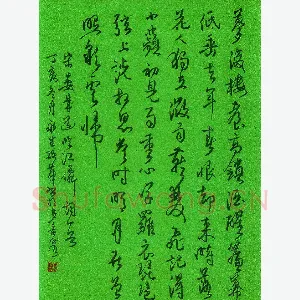 夢後樓臺高鎖酒醒簾幕
低垂去年春恨却来時落
花人獨立微雨燕雙飛記得
小蘋初見兩重心字羅衣琵琶
弦上說相思當時明月在曾
照彩雲歸
宋晏幾道临江仙
丁亥冬月
Shufawang.CN